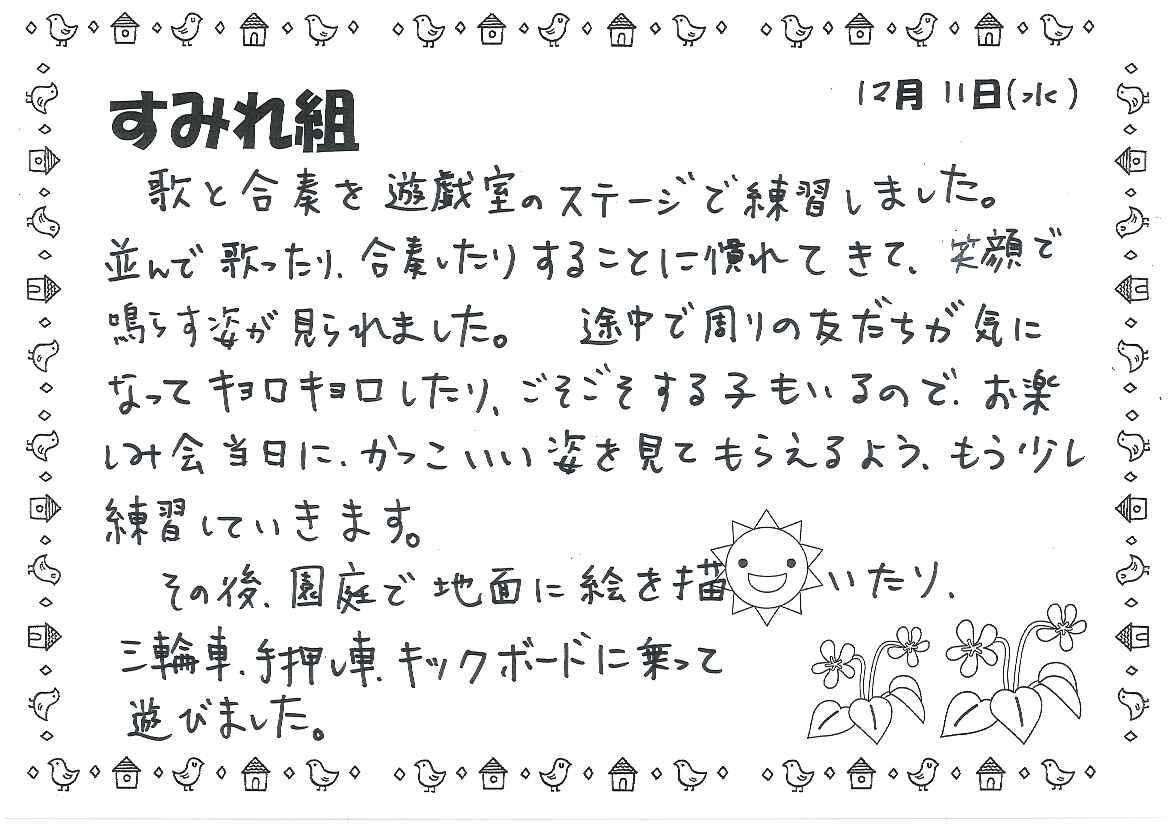 すみれ組
12月11日(水)
歌と合奏を遊戯室のステージで練習しました。
並んで歌ったり、合奏したりすることに慣れてきて、笑顔で
鳴らす姿が見られました。 途中で周りの友だちが気に
なってキョロキョロしたり、ごそごそする子もいるので、お楽
しみ会当日に、かっこいい姿を見てもらえるよう、もう少し
練習していきます。
その後、園庭で地面に絵を描いたり、
三輪車、手押し車、キックボードに乗って
遊びました。